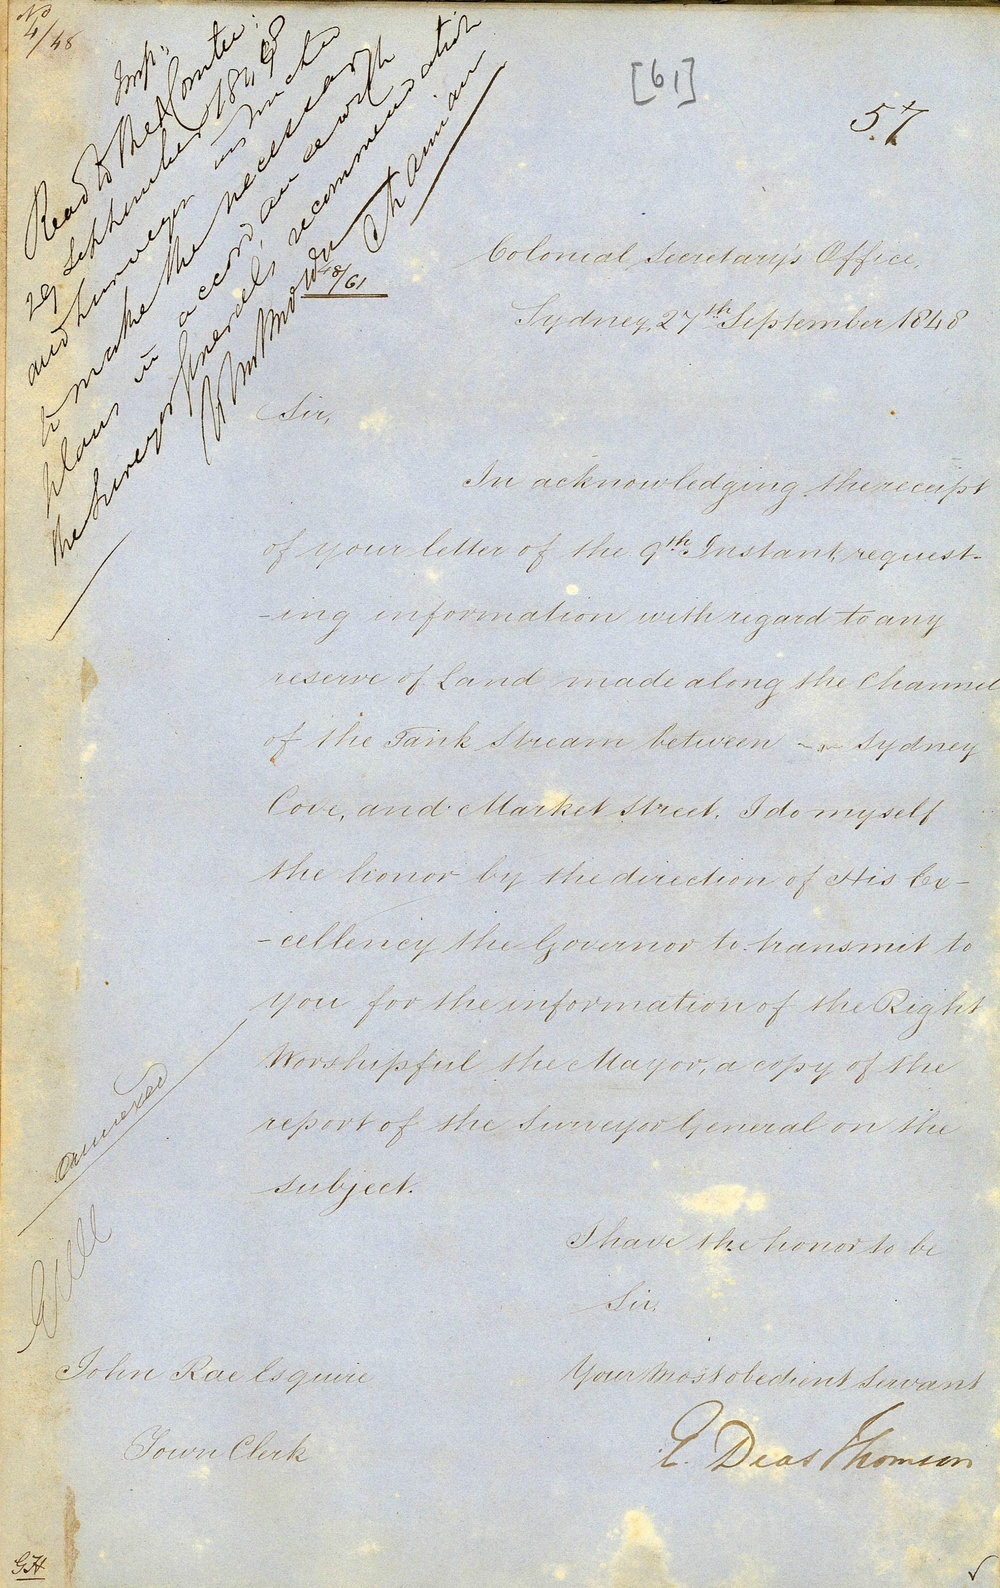 No 4/48
[61]
57
Imp:
Read to the Comtee:
29 September 1848
and Surveyor instructed
to make the necessary
plans in accordance with
the Surveyor General's recommendation
Chairman
48/61
Colonial Secretary's Office
Sydney, 27th September 1848
Sir,
In acknowledging the receipt
of your letter of the 9th Instant, request-
-ing information with regard to any
reserve of Land made along the Channel
of the Tank Stream between Sydney
Cove, and Market Street, I do myself
the honor by the direction of His Ex-
-cellency the Governor to transmit to
you for the information of the Right
Worshipful the Mayor, a copy of the
report of the Surveyor General on the
subject.
annexed
I have the honor to be
Sir,
Your most obedient Servant
E. Deas Thomson
John Rae Esquire
Town Clerk
GH